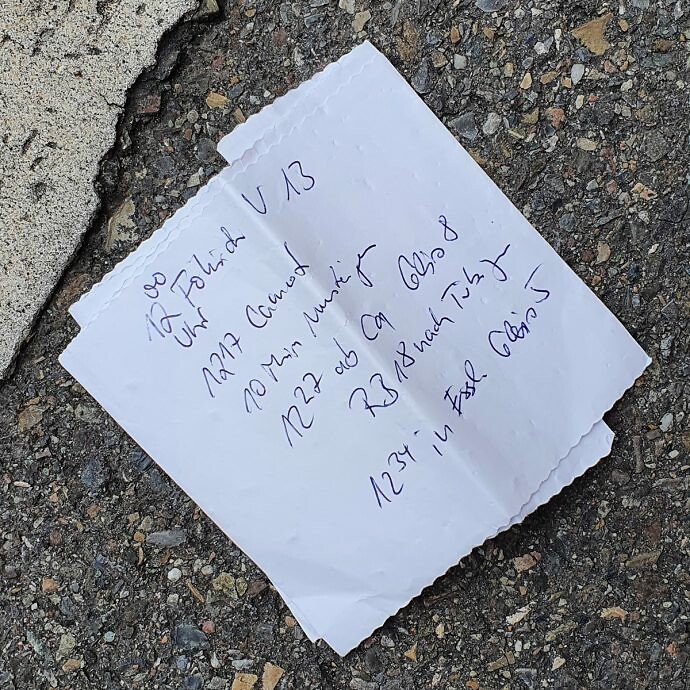 12 00 Föhrich U 13
Uhr
1217 Cannst
10 Min Umsteigen
1227 ab Ca Gleis 8
RB 18 nach Tübingen
1234 in Essl. Gleis 5